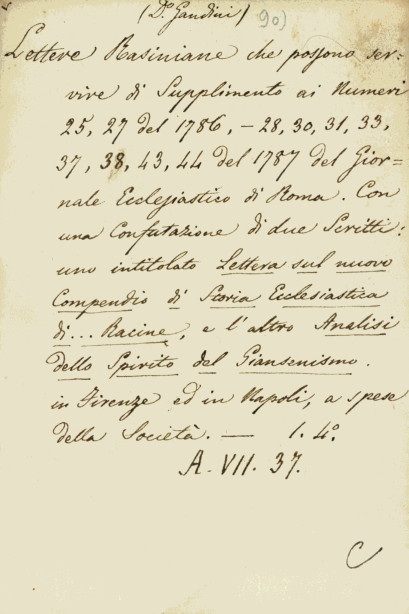 (Dº Gandini) 90)
Lettere Rasiniane che possono ser-
vire di Supplimento ai Numeri
25, 27 del 1786, – 28, 30, 31, 33,
37, 38, 43, 44 del 1787 del Gior=
nale Ecclesiastico di Roma. Con
una Confutazione di due Scritti:
uno intitolato Lettera sul nuovo
Compendio di Storia Ecclesiastica
di... Racine, e l'altro Analisi
dello Spirito del Giansenismo.
in Firenze ed in Napoli, a spese
della Società. — 1. 4º.
A. VII. 37.
C